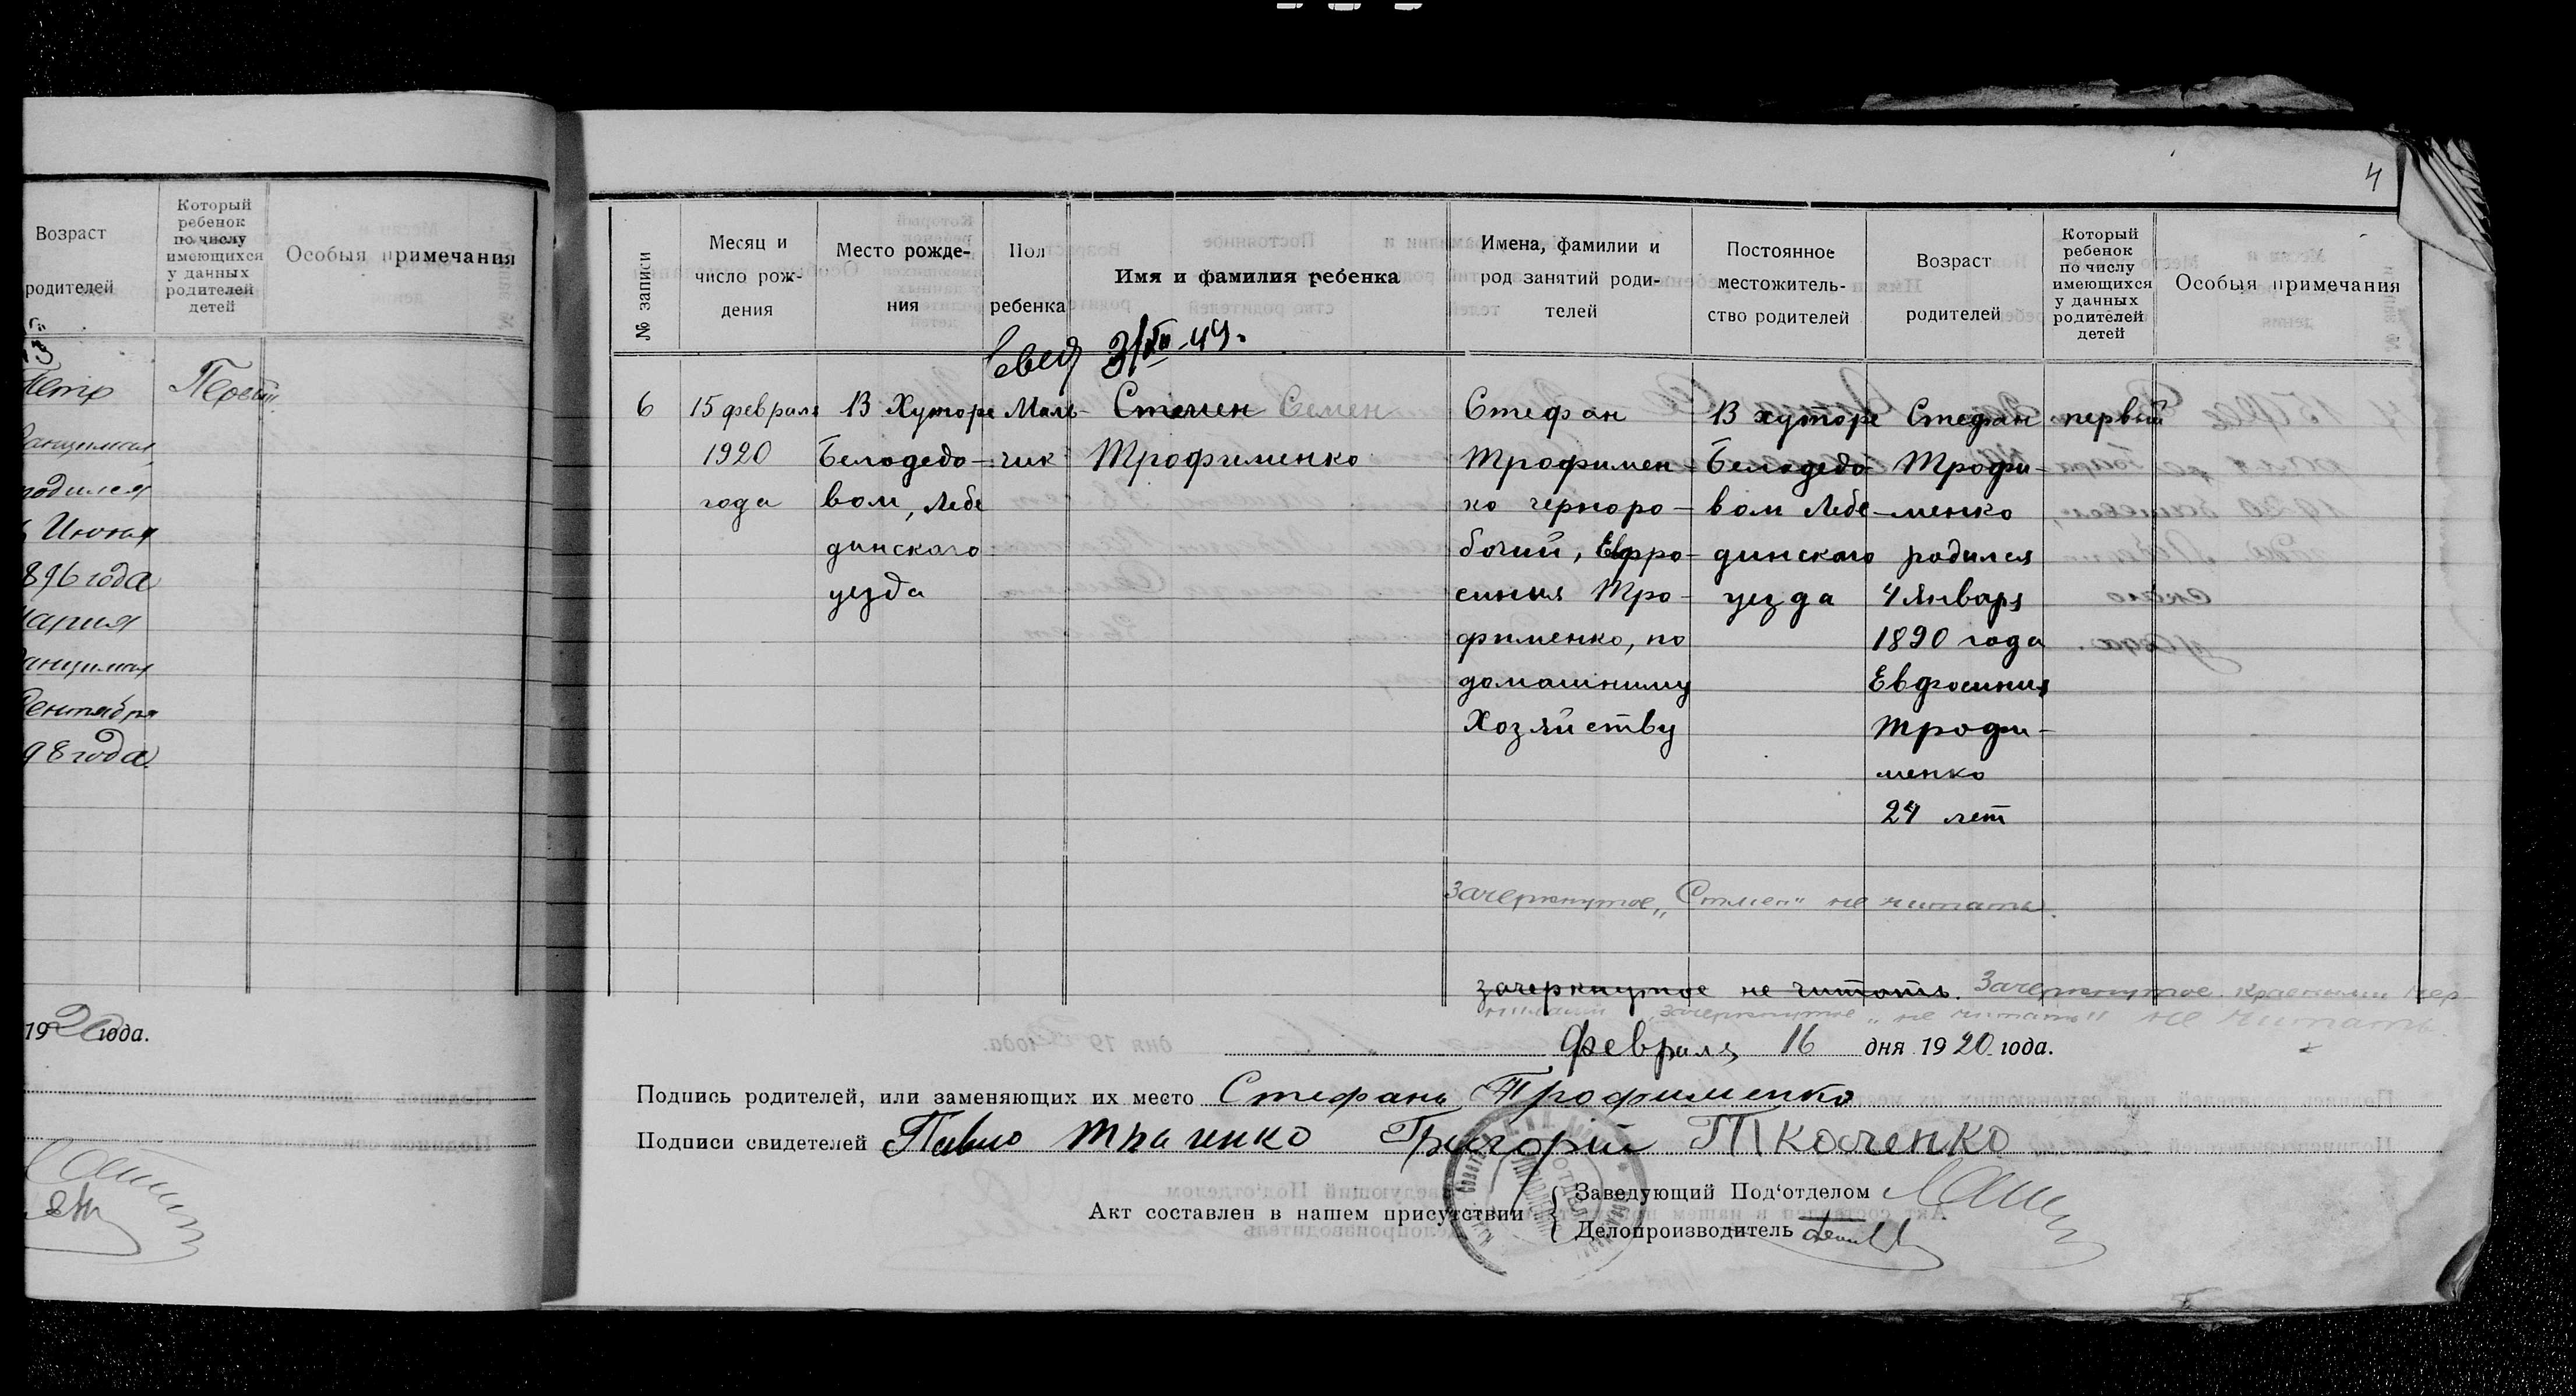 4
Возраст
родителей
Который
ребенок
по числу
имеющихся
у данных
родителей
детей
Особыя примечания
13
Петр
Первый
родился
Июня
896 года
Мария
Сентября
98 года.
1920 года.
№ записи
Месяц и
число рож-
дения
Место рожде-
ния
Пол
ребенка
Имя и фамилия ребенка
Имена, фамилии и
род занятий роди-
телей
Постоянное
местожитель-
ство родителей
Возраст
родителей
Который
ребенок
по числу
имеющихся
у данных
родителей
детей
Особыя примечания
3/XII-49.
6
15 февраля
1920
года
В Хуторе
Белодедо-
вом, Лебе
динского
уезда
Маль-
чик
Стемен Семен
Трофименко
Стефан
Трофимен-
ко черноро-
бочий, Евфро-
синия Тро-
фименко, по
домашниму
Хозяйству
В хуторе
Белодедо-
вом Лебе-
динского
уезда
Стефан
Трофи-
менко
родился
4 Января
1890 года
Евфосиния
Трофи-
менко
24 лет
первый
Зачеркнутое „Стмен" не читать.
зачеркнутое не читать. Зачеркнутое красными чер-
нилами „зачеркнутое не читать" не читать.
Февраля 16 дня 1920 года.
Подпись родителей, или заменяющих их место Стефанъ Трофименко
Подписи свидетелей Павло Ткаченко Григорій Ткоченко
Акт составлен в нашем присутствии
Заведующий Под'отделом
Делопроизводитель